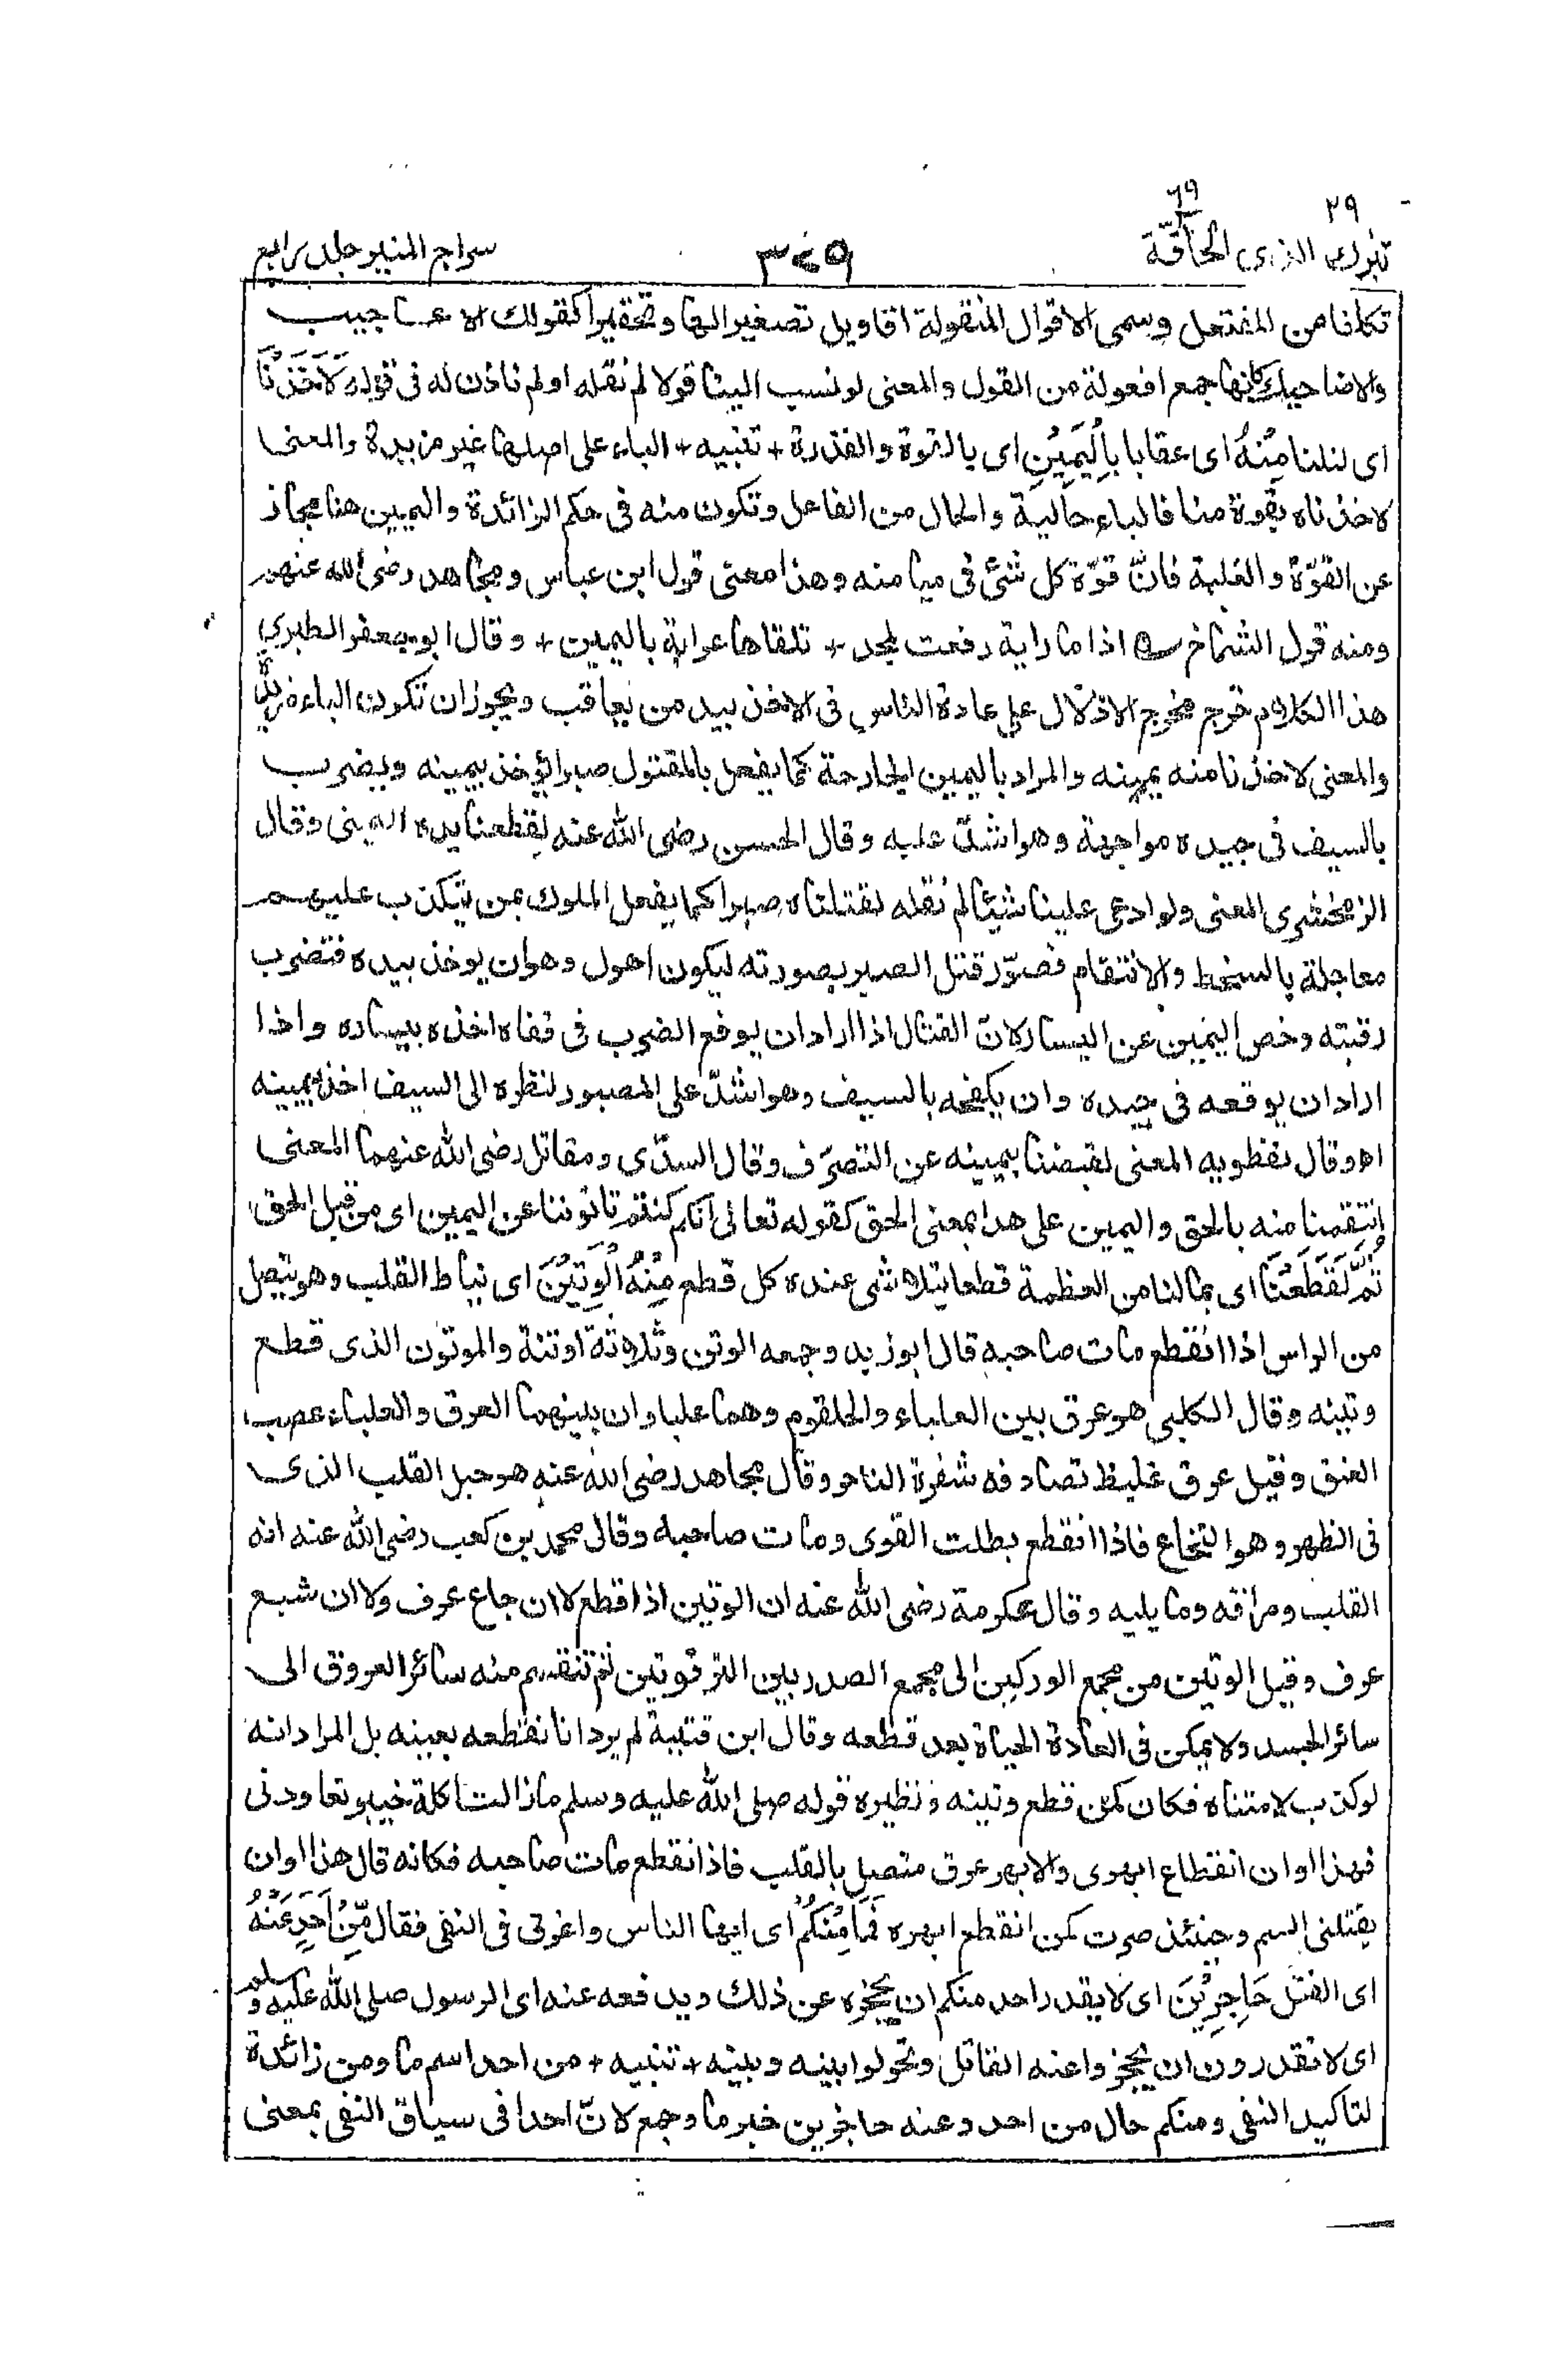 ٢٩
٦٩
تبٰرك الذي الحآقّة
٣٤٩
سراج المنير جلد رابع
تكلفا من المفتعل وسمى الاقوال المنقولة اقاويل تصغيرا لها وتحقيرا كقولك الاعاجيب
والاضاحيك كانها جمع افعولة من القول والمعنى لو نسب الينا قولا لم نقله او لم ناذن له فى قوله لَاَخَذْنَا
اى لنلنا مِنْهُ اى عقابا بِالْيَمِيْنِ اى بالقوة والقدرة + تنبيه + الباء على اصلها غير مزيدة والمعنى
لاخذناه بقوة منا فالباء حالية والحال من الفاعل وتكون منه فى حكم الزائدة واليمين هنا مجاز
عن القوّة والغلبة فانّ قوّة كل شئ فى ميامنه وهذا معنى قول ابن عباس ومجاهد رضى الله عنهم
ومنه قول الشماخ ؎ اذا ما راية رفعت لمجد + تلقاها عرابة باليمين + وقال ابو جعفر الطبري
هذا الكلام خرج مخرج الاذلال على عادة الناس فى الاخذ بيد من يعاقب ويجوز ان تكون الباء مزيدة
والمعنى لاخذنا منه يمينه والمراد باليمين الجارحة كما يفعل بالمقتول صبرا يؤخذ بيمينه ويضرب
بالسيف فى جيده مواجهة وهو اشدّ عليه وقال الحسن رضى الله عنه لقطعنا يده اليمنى وقال
الزمخشرى المعنى ولو ادعى علينا شيئا لم نقله لقتلناه صبرا كما يفعل الملوك بمن يتكذب عليهم
معاجلة بالسخط والانتقام فصوّر قتل الصبر بصورته ليكون اهول وهو ان يوخذ بيده فتضرب
رقبته وخص اليمين عن اليسار لانّ القتال اذا اراد ان يوقع الضرب فى قفاه اخذه بيساره واذا
اراد ان يوقعه فى جيده وان يكفحه بالسيف وهو اشدّ على المصبور لنظره الى السيف اخذ بيمينه
اھ وقال نفطويه المعنى لقبضنا بيمينه عن التصرّف وقال السدّى ومقاتل رضى الله عنهما المعنى
انتقمنا منه بالحق واليمين على هذا بمعنى الحق كقوله تعالى انكم كنتم تاتوننا عن اليمين اى من قبل الحق
ثُمَّ لَقَطَعْنَا اى بما لنا من العظمة قطعا يتلاشى عنده كل قطع مِنْهُ الْوَتِيْنَ اى نياط القلب وهو يتصل
من الراس اذا انقطع مات صاحبه قال ابو زيد وجمعه الوتن وثلاثة اوتنة والموتون الذى قطع
وتينه وقال الكلبى هو عرق بين العلباء والحلقوم وهما علباوان بينهما العرق والعلباء عصب
العنق وقيل عرق غليظ تصادفه شفرة الناحر وقال مجاهد رضى الله عنه هو حبل القلب الذى
فى الظهر وهو النخاع فاذا انقطع بطلت القوى ومات صاحبه وقال محمد بن كعب رضى الله عنه انه
القلب ومراقه وما يليه وقال عكرمة رضى الله عنه ان الوتين اذا قطع لا ان جاع عرف ولا ان شبع
عرف وقيل الوتين من مجمع الوركين الى مجمع الصدر بين الترقوتين ثم تنقسم منه سائر العروق الى
سائر الجسد ولا يمكن فى العادة الحياة بعد قطعه وقال ابن قتيبة لم يرد انا نقطعه بعينه بل المراد انه
لو كذب لامتناه فكان كمن قطع وتينه ونظيره قوله صلى الله عليه وسلم ما زالت اكلة خيبر تعاودنى
فهذا اوان انقطاع ابهرى والابهر عرق متصل بالقلب فاذا انقطع مات صاحبه فكانه قال هذا اوان
يقتلنى السم وحينئذ صرت كمن انقطع ابهره فَمَا مِنْكُمْ اى ايها الناس واغرق فى النفى فقال مِّنْ اَحَدٍ عَنْهُ
اى القتل حَاجِزِيْنَ اى لا يقدر احد منكم ان يحجزه عن ذلك ويدفعه عنه اى الرسول صلى الله عليه وسلم
اى لا تقدرون ان يحجزوا عنه القاتل وتحولوا بينه وبينه + تنبيه + من احد اسم ما ومن زائدة
لتاكيد النفى ومنكم حال من احد وعنه حاجزين خبر ما وجمع لانّ احدا فى سياق النفى بمعنى